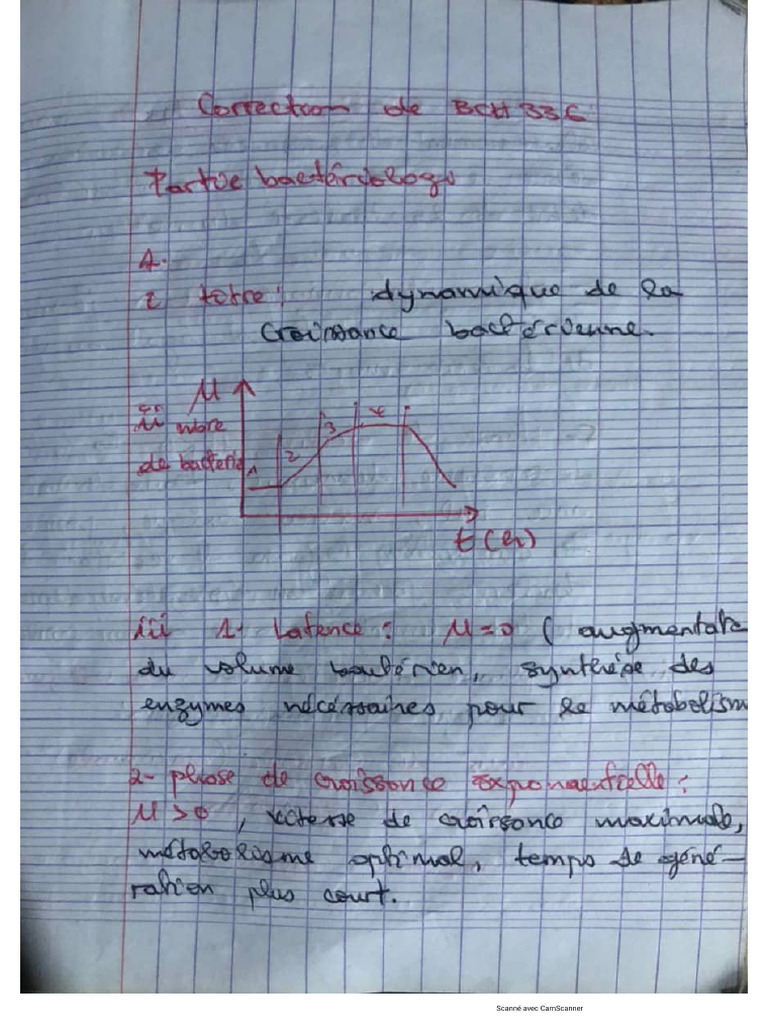 Correction de BCH 336
Partie bactériologie
1.
i titre : dynamique de la
croissance bactérienne.
µ
ii nbre
de bacterie
1 2 3 4
t (h)
iii 1. Latence : µ = 0 ( augmentat
du volume bactérien, synthèse des
enzymes nécéssaires pour le métabolism
2- phase de croissance exponentielle :
µ > 0 , vitesse de croissance maximale,
métabolisme optimal, temps de géné-
ration plus court.
Scanné avec CamScanner